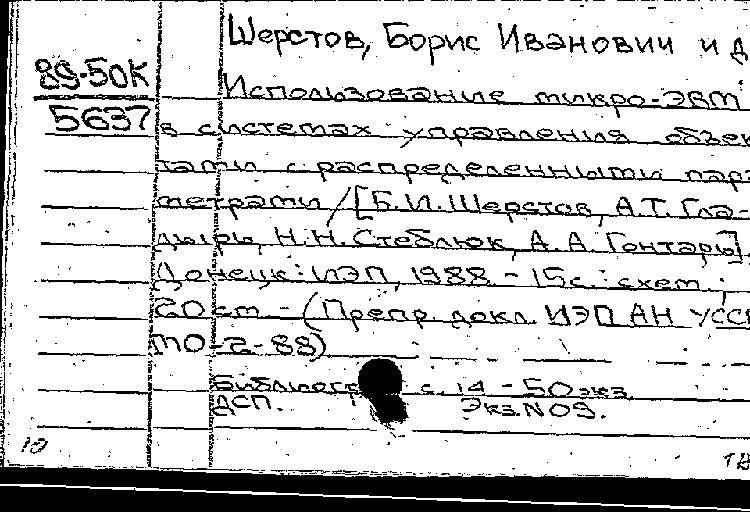 Шерстов, Борис Иванович и д
89-50К
5637
Использование микро-ЭВМ
в системах управления объек
тами с распределенными пара
метрами / [Б.И. Шерстов, А.Т. Гла-
дырь, Н.Н. Стеблюк, А.А. Гонтарь].
Донецк: ИЭП, 1988. - 15с.: схем.;
20 см - (Препр. докл. ИЭП АН УССР
ПО-2-88)
Библиогр. с. 14 - 50 экз.
ДСП. Экз.N09.
10